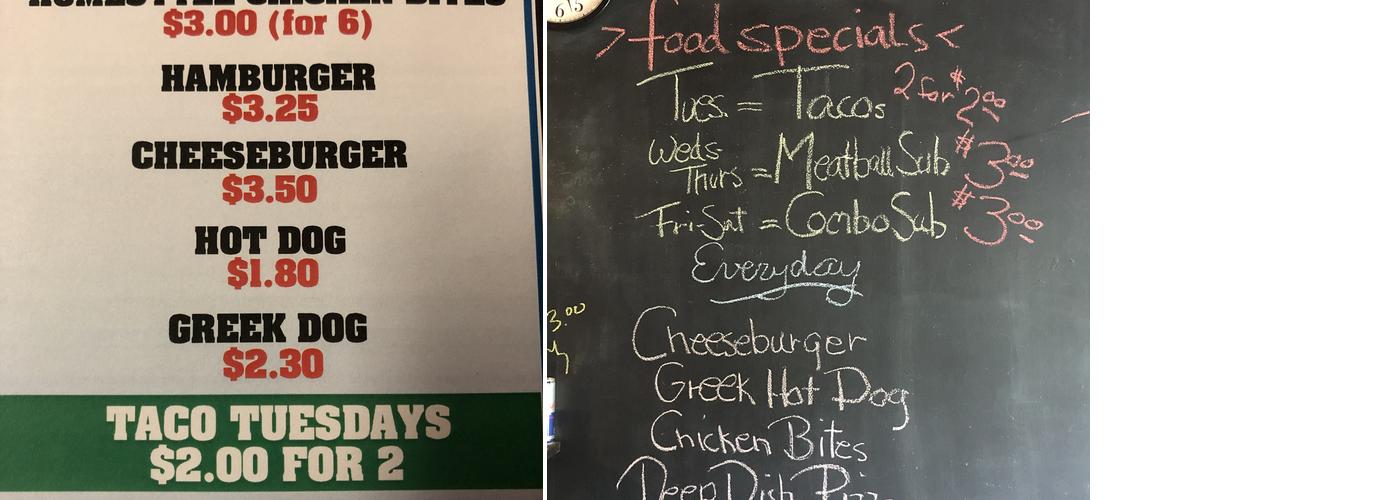 HOMESTYLE CHICKEN BITES
$3.00 (for 6)
HAMBURGER
$3.25
CHEESEBURGER
$3.50
HOT DOG
$1.80
GREEK DOG
$2.30
TACO TUESDAYS
$2.00 FOR 2
6
5
>food specials<
Tues = Tacos 2 for $2.00
Weds-
Thurs = Meatball Sub $3.00
Fri-Sat = Combo Sub $3.00
Everyday
3.00
Cheeseburger
Greek Hot Dog
Chicken Bites
Deep Dish